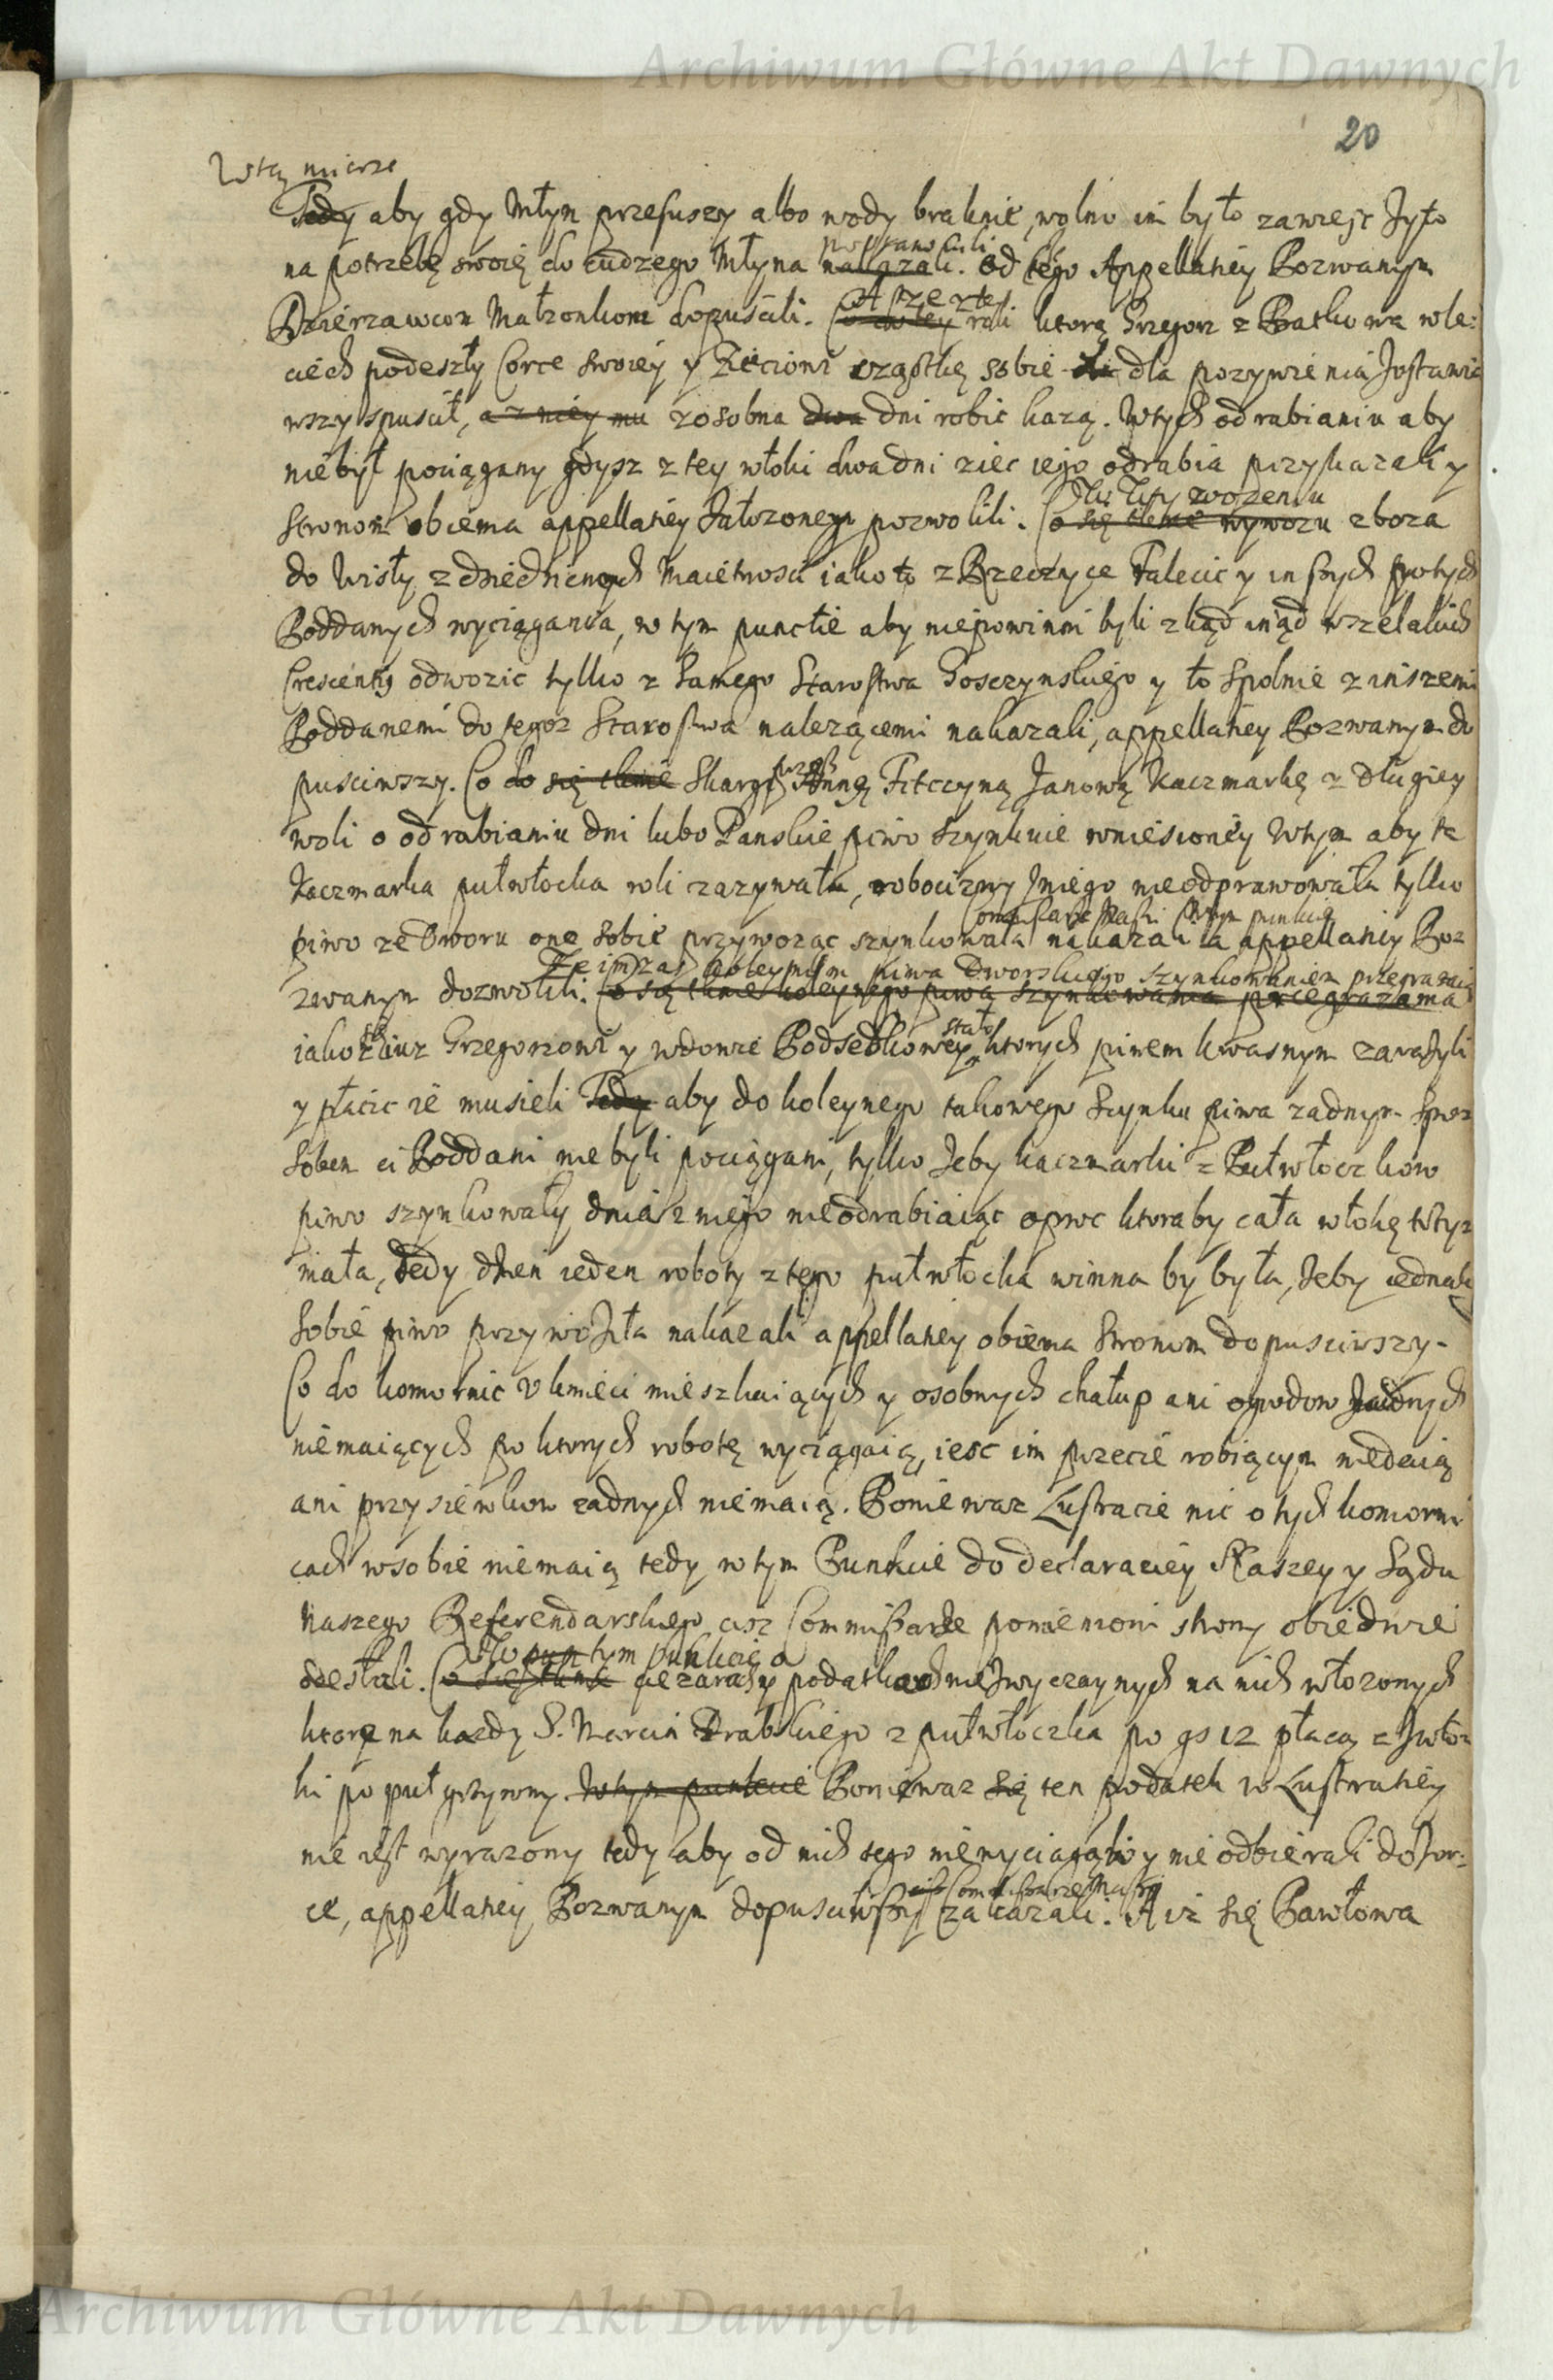 Archiwum Główne Akt Dawnych
20
W tey mierze
Tedy aby gdy Młyn przesuszy albo wody braknie, wolno im było zawiesc żyto
postanowili
na potrzebę swoię do cudzego Młyna nakazali. Od tego Appellatiey Pozwanym
A ze z tey
Dzierzawcom Małzonkom dopuscili. Co do tey roli ktorą Grzegorz z Ratkowa w le:
ciech podeszły Corce swoiey y Zięciowi cząstkę sobie dla pozywienia zostawi
wszy spuscił, a z niey mu zosobna dwa dni robic kazą. W tych odrabianiu aby
niebył pociągany gdysz z tey włoki dwa dni ziec iego odrabia przykazali y
zwozeniu
Stronom obiema appellatiey załozonego pozwolili. Co się tknie wywozu zboza
do Wisły z dziedzicznych Maietnosci iako to z Brzeczyce Falecic y inszych po tych
Poddanych wyciągania, w tym punctie aby niepowinni byli zkąd inąd wszelakich
Crescentÿ odwozic tylko z samego Starostwa Gosczynskiego y to spolnie z inszemi
Poddanemi do tegoz Starostwa nalezącemi nakazali, appellatiey Pozwanym do
przez
pusciwszy. Co do się tknie Skargi Annę Fitczyną Janową Kaczmarkę z Długiey
woli o odrabianiu dni lubo Panskie piwo szynkuie wniesioney W tym aby ta
Kaczmarka pułwłocka roli zazywała, robocizny z niego nieodprawowała tylko
Commissarze Nasi w tym punkcie
piwo ze Dworu one sobie przywoząc szynkowała nakazali a appellatiey Poz
Ze im zas koleynym piwa Dworskiego szynkowaniem przegraza
zwanym dozwolili. Co się tknie koleynego piwa szynkowania przegrazania
stało
iako iuz Grzegorzowi y wdowie Podsedkowey ktorych piwem kwasnym zarazyli
y płacic ie musieli Tedy aby do koleynego takowego szynku piwa zadnym spo
soben ci Poddani niebyli pociągani, tylko zeby kaczmarki z Pułwłoczkow
piwo szynkowały dnia z niego nieodrabiaiąc oproc ktoraby cała włokę trzy
mała, tedy dzien ieden roboty z tego pułwłocka winna by była, zeby iednak
sobie piwo przywoziła nakazali appellatiey obiema Stronom dopusciwszy.
Co do komornic v kmieci mieszkaiących y osobnych chałup ani ogrodow zadnych
niemaiących po ktorych robotę wyciągaią, iesc im przecie robiącym niedaią
ani przysiewkow zadnych niemaią. Poniewaz Lustracie nic o tych komorni
cach w sobie niemaią tedy w tym Punkcie do declaraciey Naszey y Sądu
Naszego Referendarskiego ciz Commissarze pomienioni strony obiedwie
W tym punkcie o
odesłali. Co się tknie podatkach niezwyczaynych na nich włozonych
ktorą na kazdy S. Marcin Drabskiego z pułwłoczka po gs 12 płacą z Zwło
ki po puł grzywny. W tym punkcie Poniewaz się ten podatek w Lustratiey
nie iest wyrazony tedy aby od nich tego niewyciągali y nie odbierali do Dwor:
ciz Commissarze Nasi
ce, appellatiey Pozwanym dopusciwszy zakazali. A iz się Pawłowa
Archiwum Główne Akt Dawnych